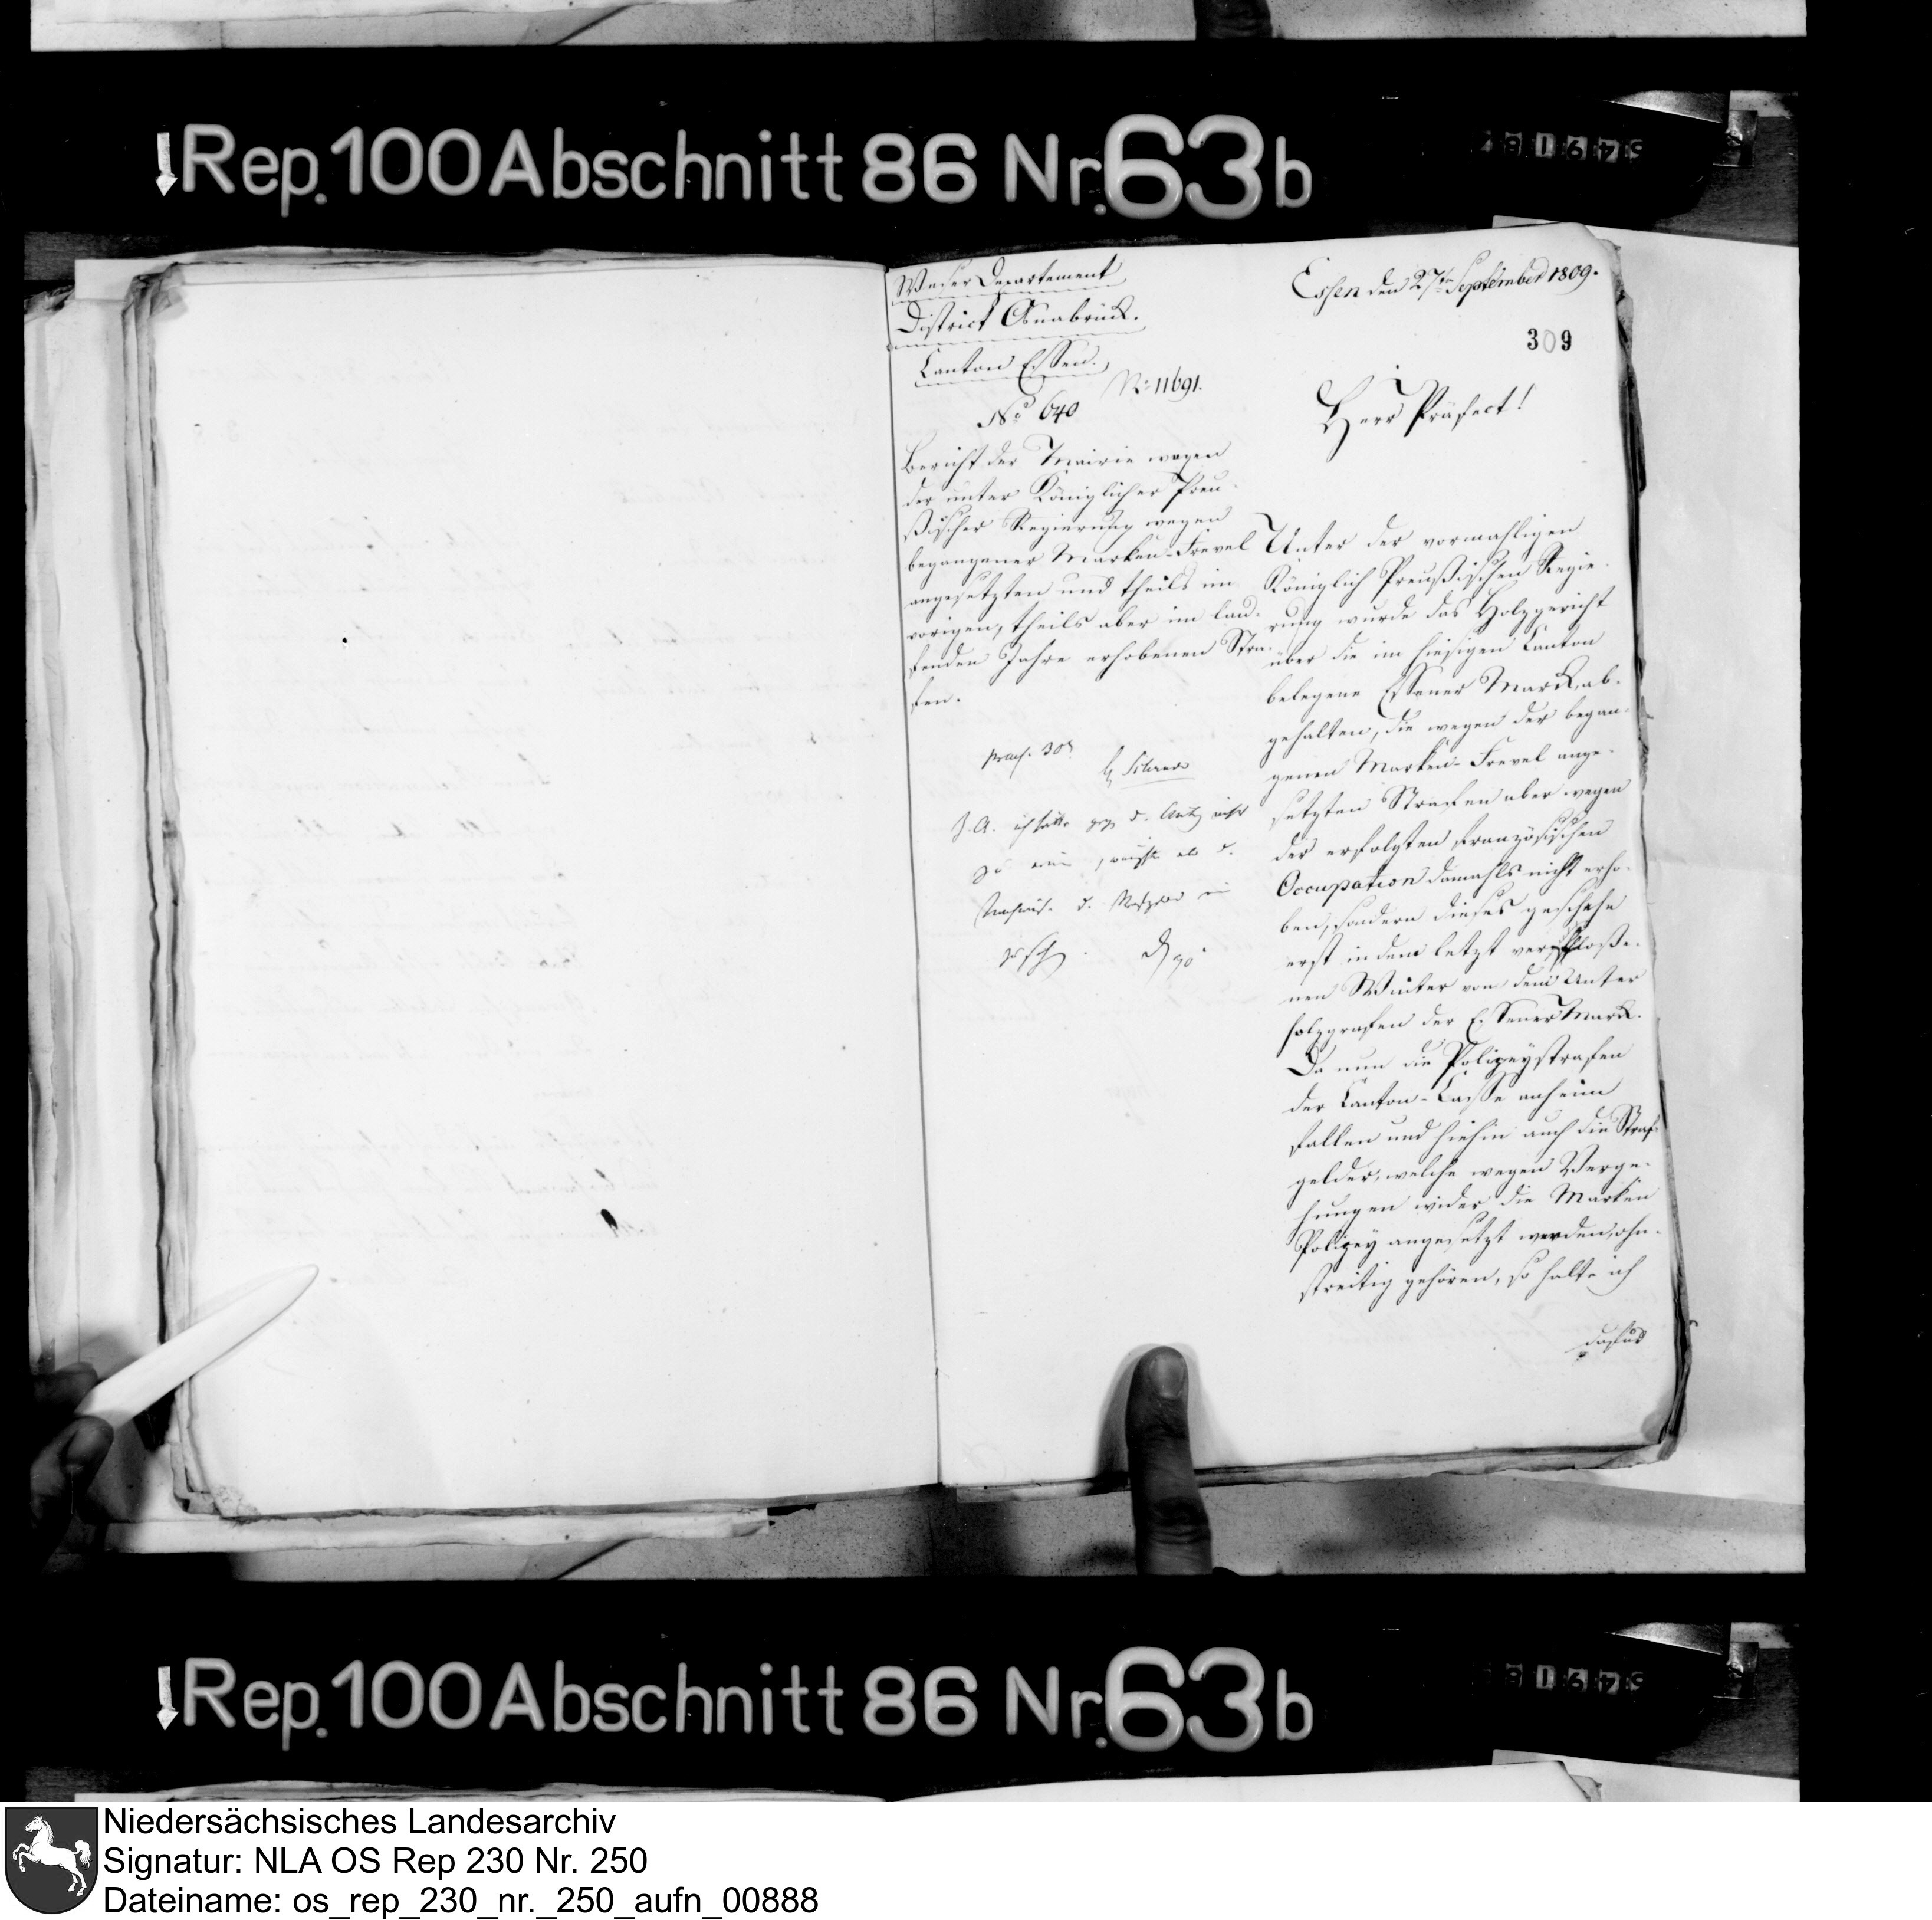 Rep. 100 Abschnitt 86 Nr. 63b
Weser Departement
District Osnabrück.
Canton Essen.
No 640
No 11691.
Essen den 27ten September 1809.
309
Herr Präfect!
Bericht der Mairie wegen
der unter Königlicher Preu-
ßischer Regierung wegen
begangener Marken-Frevel
angesetzten und theils im
vorigen, theils aber im lau-
fenden Jahre erhobenen Stra-
fen.
praes. 30
Unter der vormahligen
Königlich Preußischen Regie-
rung wurde das Holzgericht
über die im hiesigen Canton
belegene Essener Marck, ab-
gehalten, die wegen der began-
genen Marken-Frevel ange-
setzten Strafen aber wegen
der erfolgten französischen
Occupation damahls nicht erho-
ben, sondern dieses geschehe
erst in dem letzt verschloße-
nen Winter von dem Unter
holzgrafen der Essener Marck.
Da nun die Polizeystrafen
der Canton-Casse anheim
fallen und hiehin auch die Straf-
gelder, welche wegen Verge-
hungen wider die Marken
Polizey angesetzt werden, ohn-
streitig gehören, so halte ich
dafür
Rep. 100 Abschnitt 86 Nr. 63b
Niedersächsisches Landesarchiv
Signatur: NLA OS Rep 230 Nr. 250
Dateiname: os_rep_230_nr._250_aufn_00888